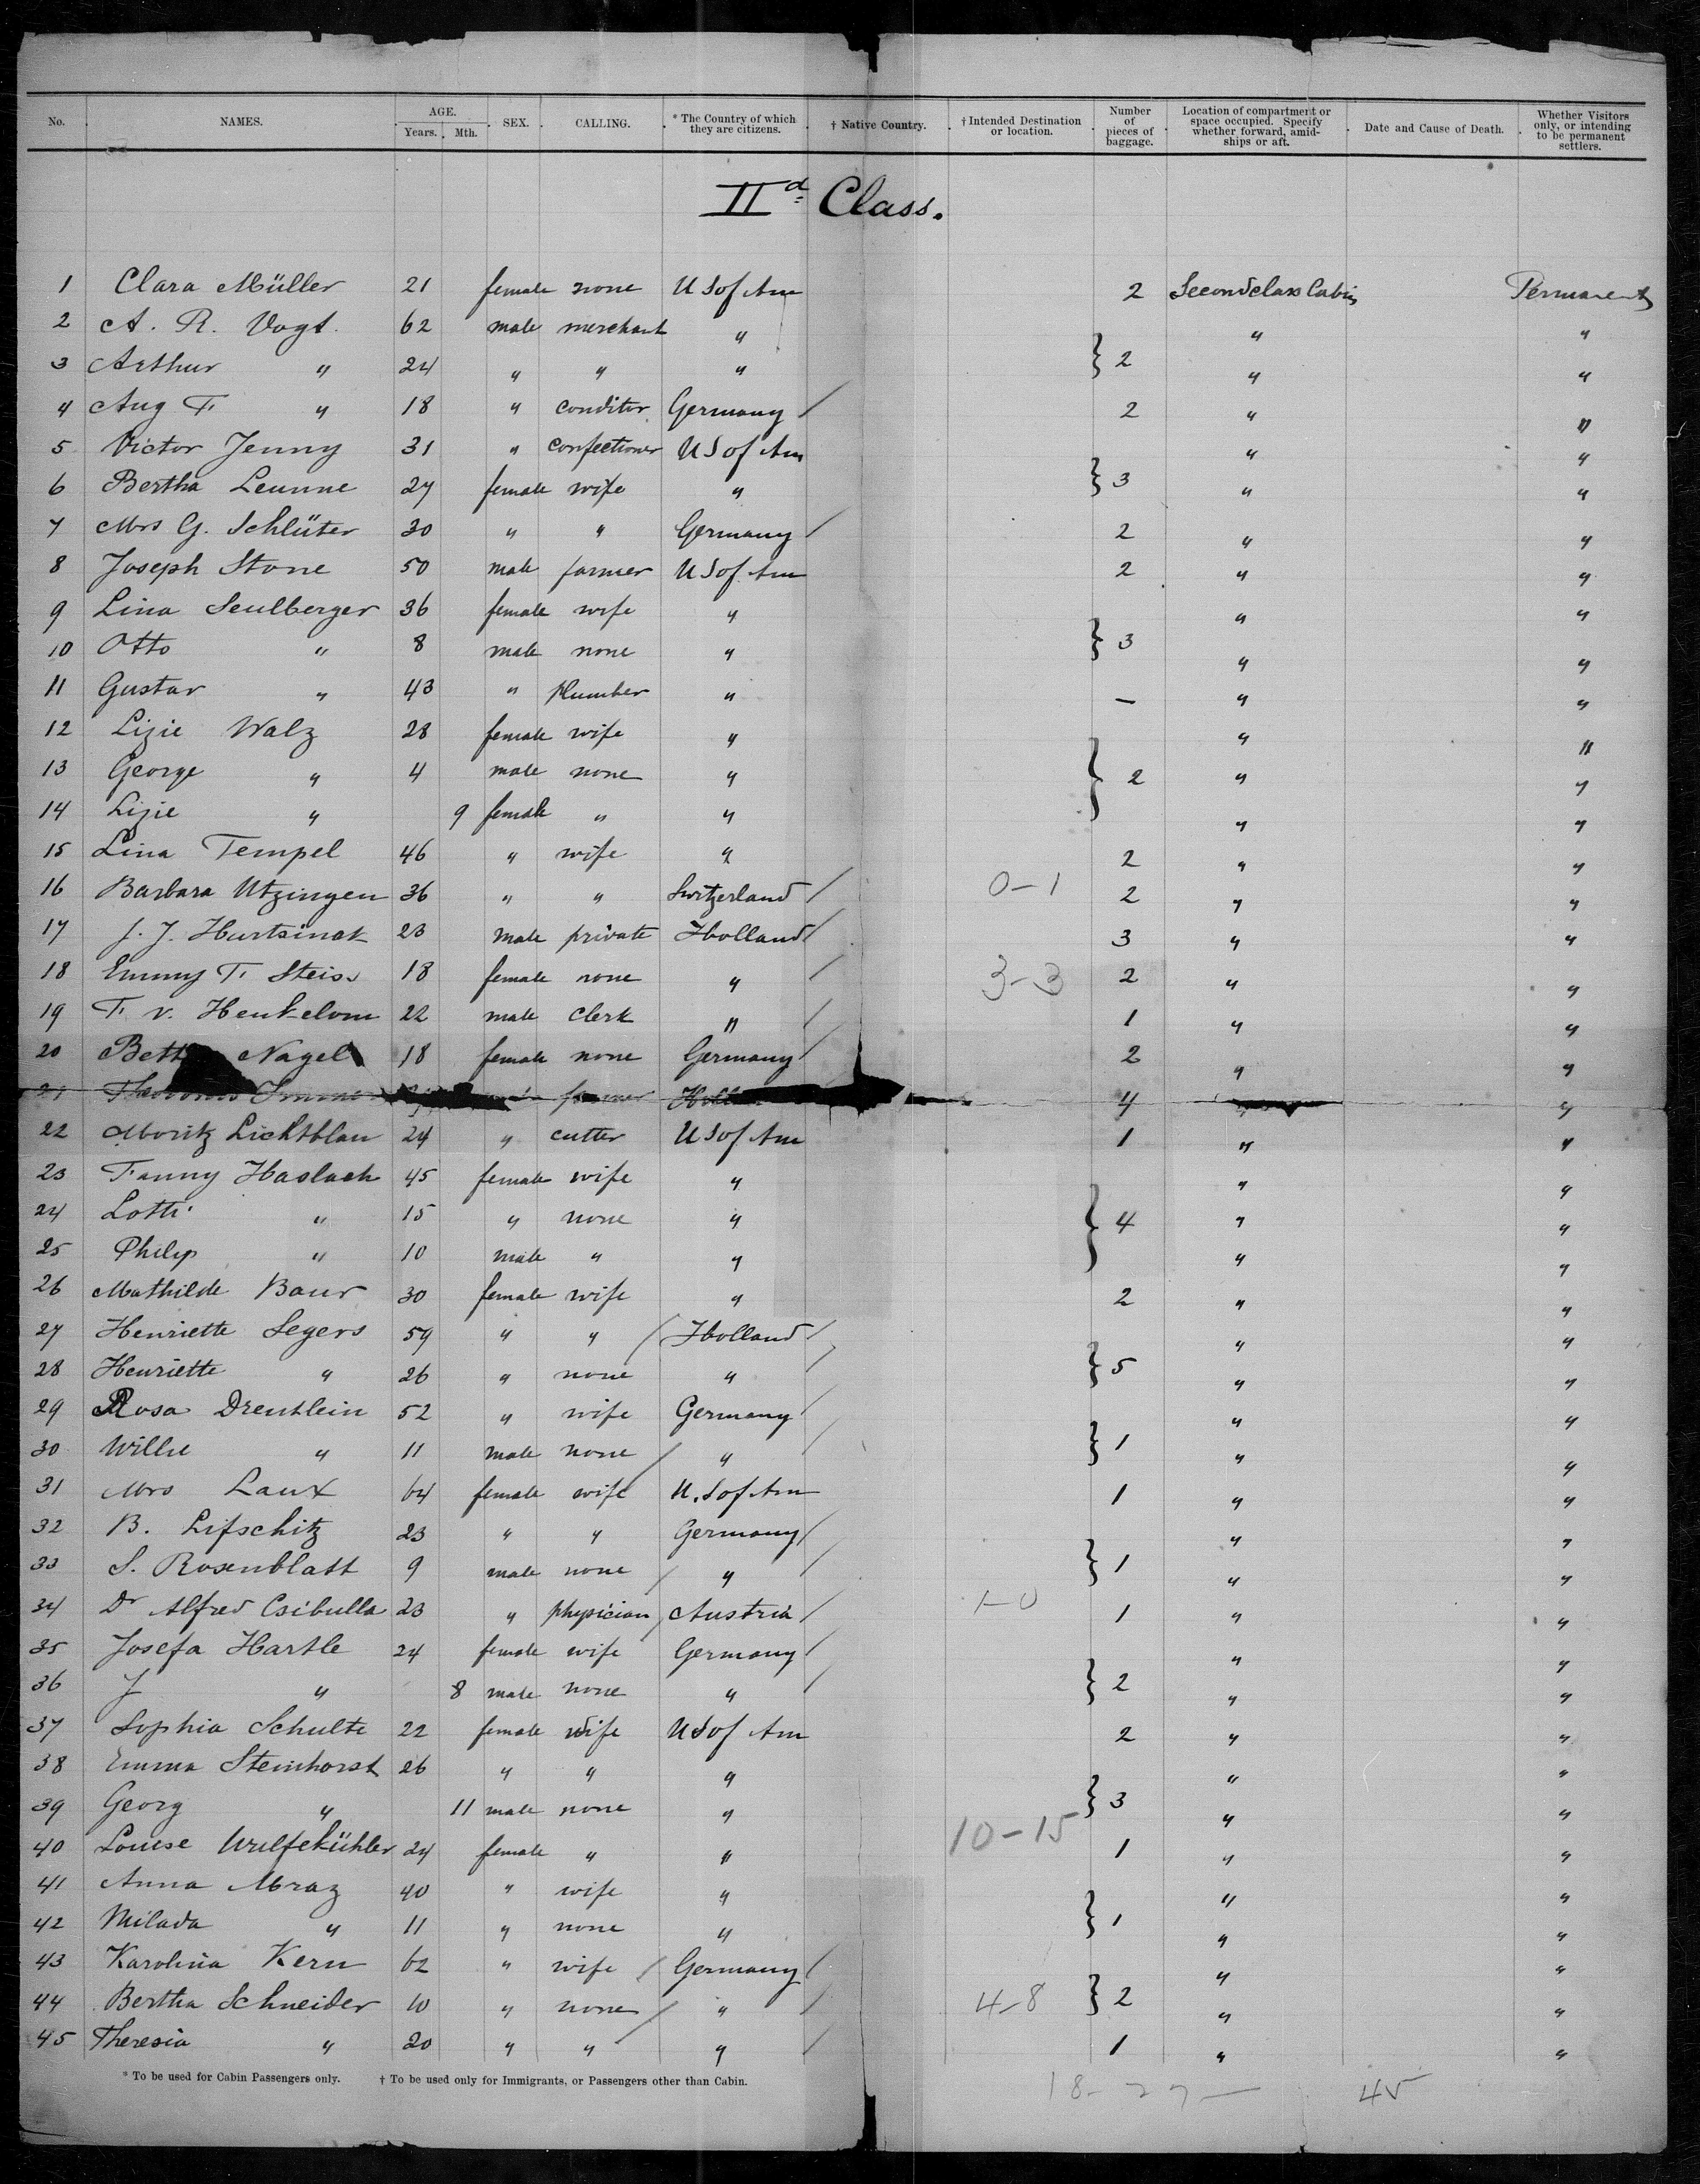 No. NAMES. AGE. Years. Mth. SEX. CALLING. * The Country of which they are citizens. † Native Country. † Intended Destination or location. Number of pieces of baggage. Location of compartment or space occupied. Specify whether forward, amidships or aft. Date and Cause of Death. Whether Visitors only, or intending to be permanent settlers.
IId Class.
1 Clara Müller 21 female none U S of Am 2 Second class Cabin Permanent
2 A. R. Vogt. 62 male merchant " " "
3 Arthur " 24 " " " } 2 " "
4 Aug F. " 18 " conditor Germany / 2 " "
5 Victor Jenny 31 " confectioner U S of Am " "
6 Bertha Leunne 27 female wife " } 3 " "
7 Mrs G. Schlüter 30 " " Germany / 2 " "
8 Joseph Stone 50 male farmer U S of Am 2 " "
9 Lina Seulberger 36 female wife " " "
10 Otto " 8 male none " } 3 " "
11 Gustav " 43 " plumber " — " "
12 Lizie Walz 28 female wife " " "
13 George " 4 male none " } 2 " "
14 Lizie " 9 female " " " "
15 Lina Tempel 46 " wife " 2 " "
16 Barbara Utzingen 36 " " Switzerland / 0-1 2 " "
17 J. J. Hurtsinak 23 male private Holland / 3 " "
18 Emmy F. Steiss 18 female none " / 3-3 2 " "
19 F. v. Henkelom 22 male clerk " / 1 " "
20 Nagel 18 female none Germany / 2 " "
21 farmer 4 "
22 Moritz Lichtblau 24 " cutter U S of Am 1 " "
23 Fanny Haslach 45 female wife " " "
24 Lotti " 15 " none " } 4 " "
25 Philip " 10 male " " " "
26 Mathilde Baur 30 female wife " 2 " "
27 Henriette Segers 59 " " / Holland / " "
28 Henriette " 26 " none " / } 5 " "
29 Rosa Drentlein 52 " wife Germany / " "
30 Willie " 11 male none / " / } 1 " "
31 Mrs Laux 64 female wife U. S of Am 1 " "
32 B. Lifschitz 23 " " Germany / " "
33 S. Rosenblatt 9 male none / " / } 1 " "
34 Dr Alfred Csibulla 23 " physician / Austria / 1-0 1 " "
35 Josefa Hartle 24 female wife Germany / " "
36 J " 8 male none " / } 2 " "
37 Sophia Schulte 22 female wife U S of Am 2 " "
38 Emma Steinhorst 26 " " " " "
39 Georg " 11 male none " } 3 " "
40 Louise Wulfekühler 24 female " " 10-15 1 " "
41 Anna Mraz 40 " wife " " "
42 Milada " 11 " none " } 1 " "
43 Karolina Kern 62 " wife / Germany / " "
44 Bertha Schneider 10 " none / " / 4-8 } 2 " "
45 Theresia " 20 " " / " / 1 " "
* To be used for Cabin Passengers only. † To be used only for Immigrants, or Passengers other than Cabin.
18- 27 — 45